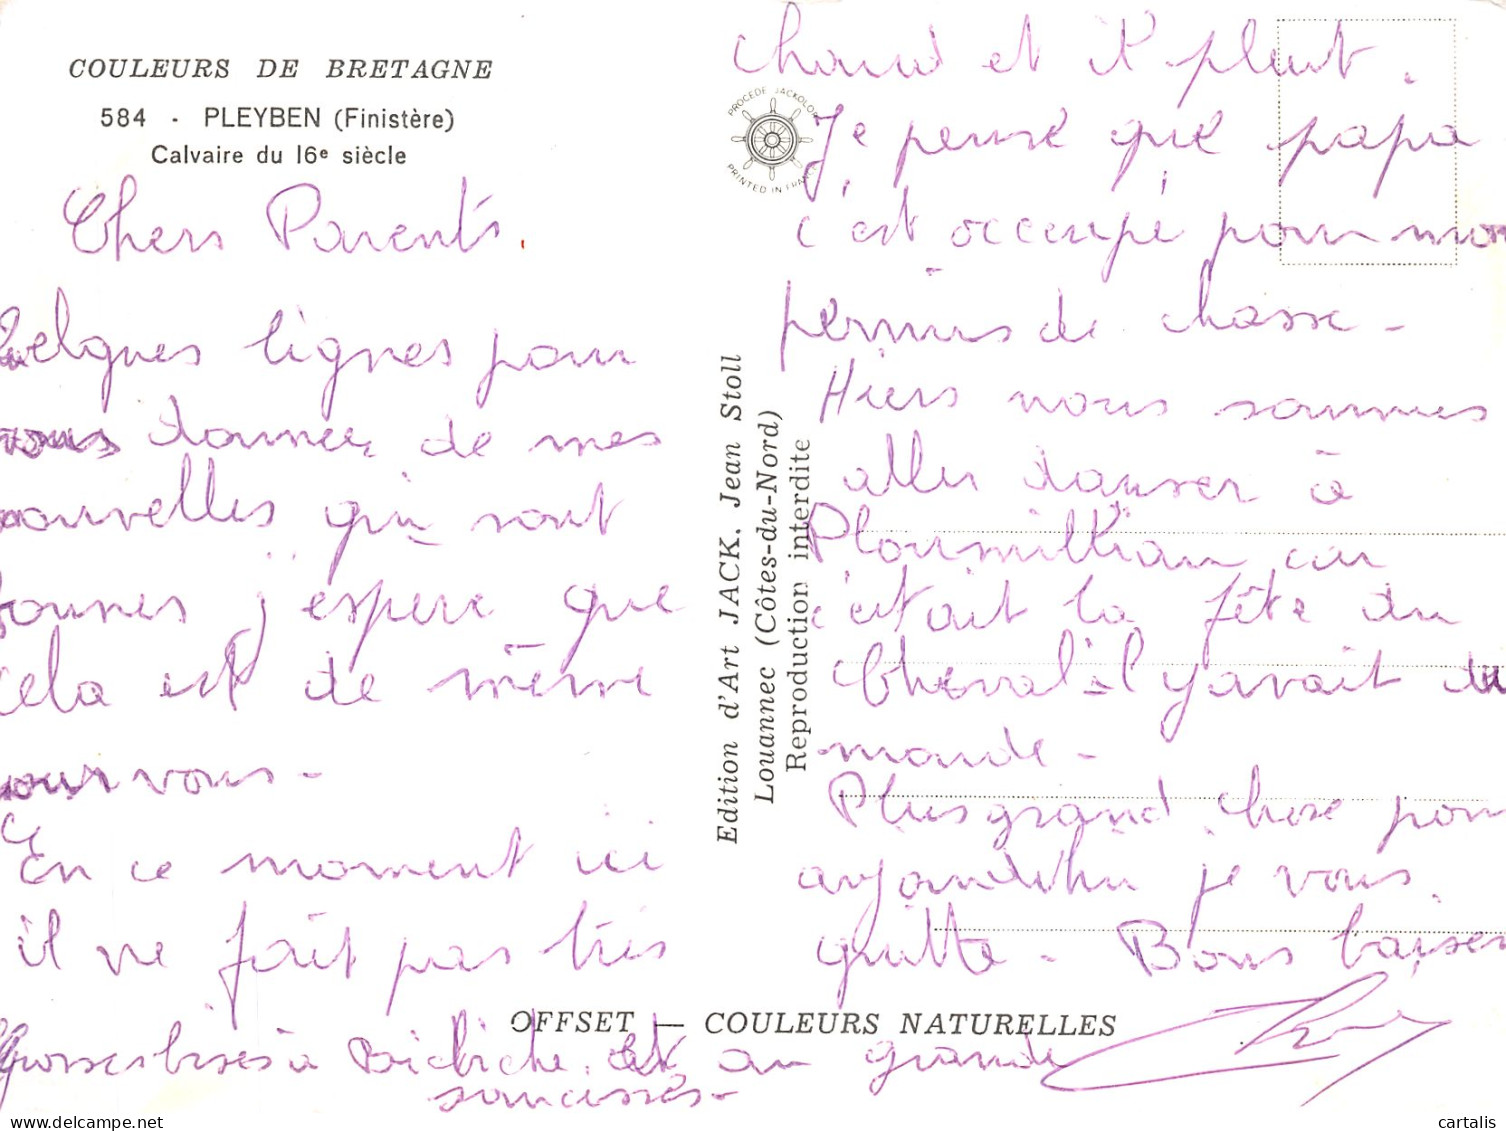 COULEURS DE BRETAGNE
584 - PLEYBEN (Finistère)
Calvaire du 16e siècle
Chers Parents,
Quelques lignes pour
vous donner de mes
nouvelles qui sont
bonnes j'espère que
cela est de même
pour vous -
En ce moment ici
il ne fait pas très
chaud et il pleut.
Je pense que papa
c'est occcupé pour mon
permis de chasse -
Hiers nous sommes
aller danser à
Ploumilliau car
c'était la fête du
Cheval il y avait du
monde -
Plus grand chose pour
aujourd'hui je vous
quitte - Bons baisers
Grosses bises à Bichiche et au grande
saucisses -
PROCEDE JACKOLOR
PRINTED IN FRANCE
Edition d'Art JACK, Jean Stoll
Louannec (Côtes-du-Nord)
Reproduction interdite
OFFSET — COULEURS NATURELLES
delcampe.net
cartalis